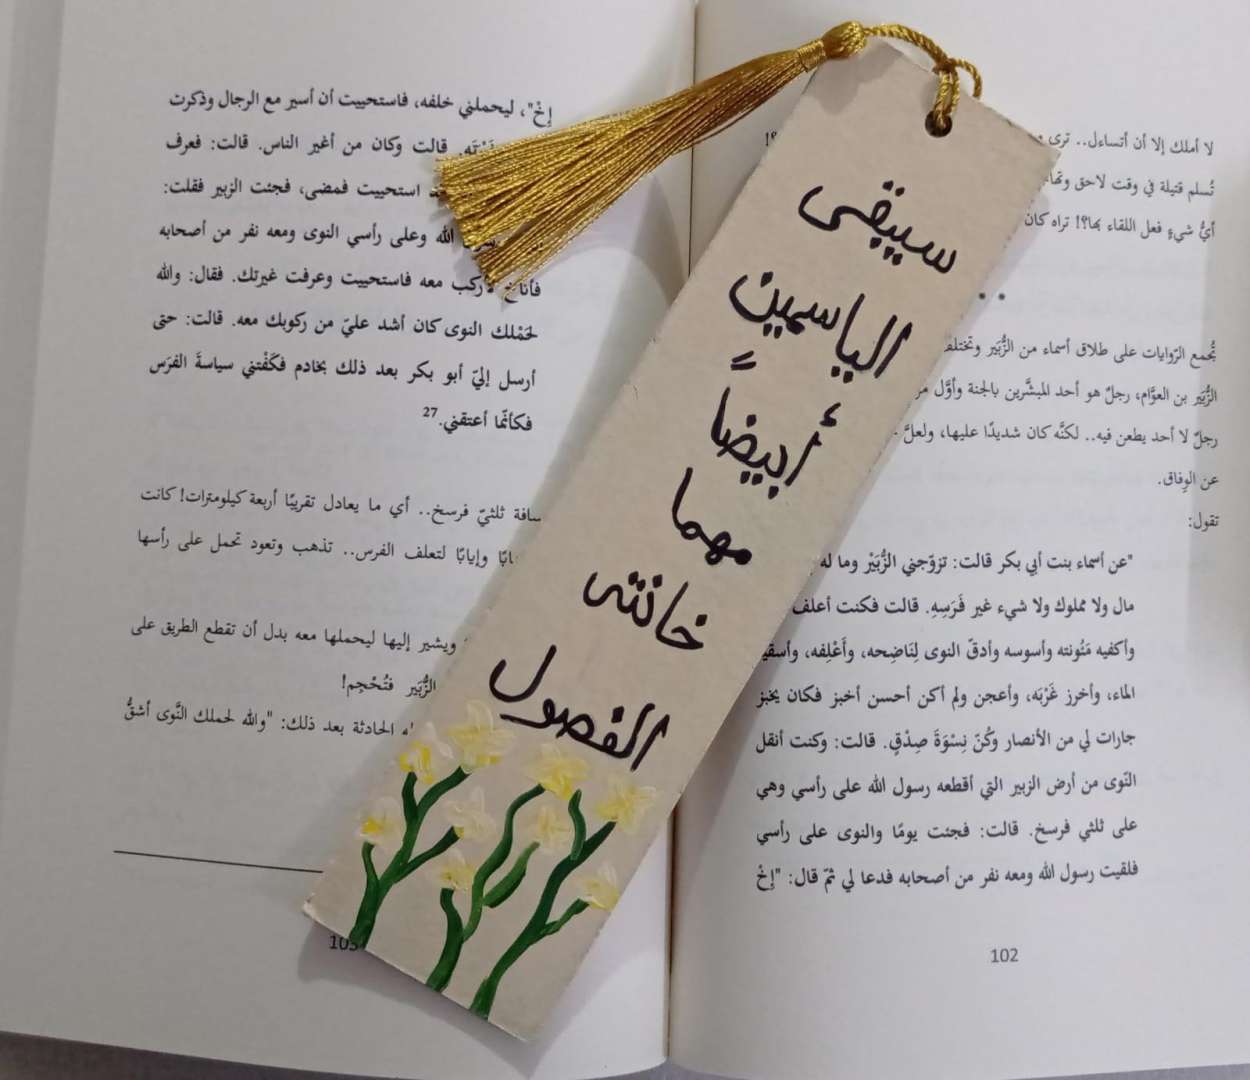 سيبقى
الياسمين
أبيضاً
مهما
خانته
الفصول
لا أملك إلا أن أتساءل.. ترى
تُسلم قتيلة في وقت لاحق
أيُّ شيءٍ فعل اللقاء بها؟! تراه كان
تُجمع الرّوايات على طلاق أسماء من الزُّبَير وتختلف
الزُّبَير بن العوَّام، رجلٌ هو أحد المبشَّرين بالجنة وأوَّل
رجلٌ لا أحد يطعن فيه.. لكنَّه كان شديدًا عليها، ولعلَّ
عن الوِفاق.
تقول:
"عن أسماء بنت أبي بكر قالت: تزوّجني الزُّبَيْر وما له
مال ولا مملوك ولا شيء غير فَرَسِهِ. قالت فكنت أعلف
وأكفيه مَئونته وأسوسه وأدقّ النوى لِنَاضِحه، وأَعْلِفه، وأسقي
الماء، وأخرز غَرْبَه، وأعجن ولم أكن أحسن أخبز فكان يخبز
جارات لي من الأنصار وكُنّ نِسْوَةَ صِدْقٍ. قالت: وكنت أنقل
النّوى من أرض الزبير التي أقطعه رسول الله على رأسي وهي
على ثلثي فرسخ. قالت: فجئت يومًا والنوى على رأسي
فلقيت رسول الله ومعه نفر من أصحابه فدعا لي ثمّ قال: "إخْ
102
إخْ"، ليحملني خلفه، فاستحييت أن أسير مع الرجال وذكرت
قالت وكان من أغير الناس. قالت: فعرف
استحييت فمضى، فجئت الزبير فقلت:
الله وعلى رأسي النوى ومعه نفر من أصحابه
فأناخ لأركب معه فاستحييت وعرفت غيرتك. فقال: والله
لحَمْلك النوى كان أشد عليّ من ركوبك معه. قالت: حتى
أرسل إليّ أبو بكر بعد ذلك بخادم فكَفْتني سياسةَ الفرَس
فكأنّما أعتقني.27
ثلثيّ فرسخ.. أي ما يعادل تقريبًا أربعة كيلومترات! كانت
وإيابًا لتعلف الفرس.. تذهب وتعود تحمل على رأسها
ويشير إليها ليحملها معه بدل أن تقطع الطريق على
الزُّبَير فتُحْجِم!
الحادثة بعد ذلك: "والله لحملك النَّوى أشقُّ
103